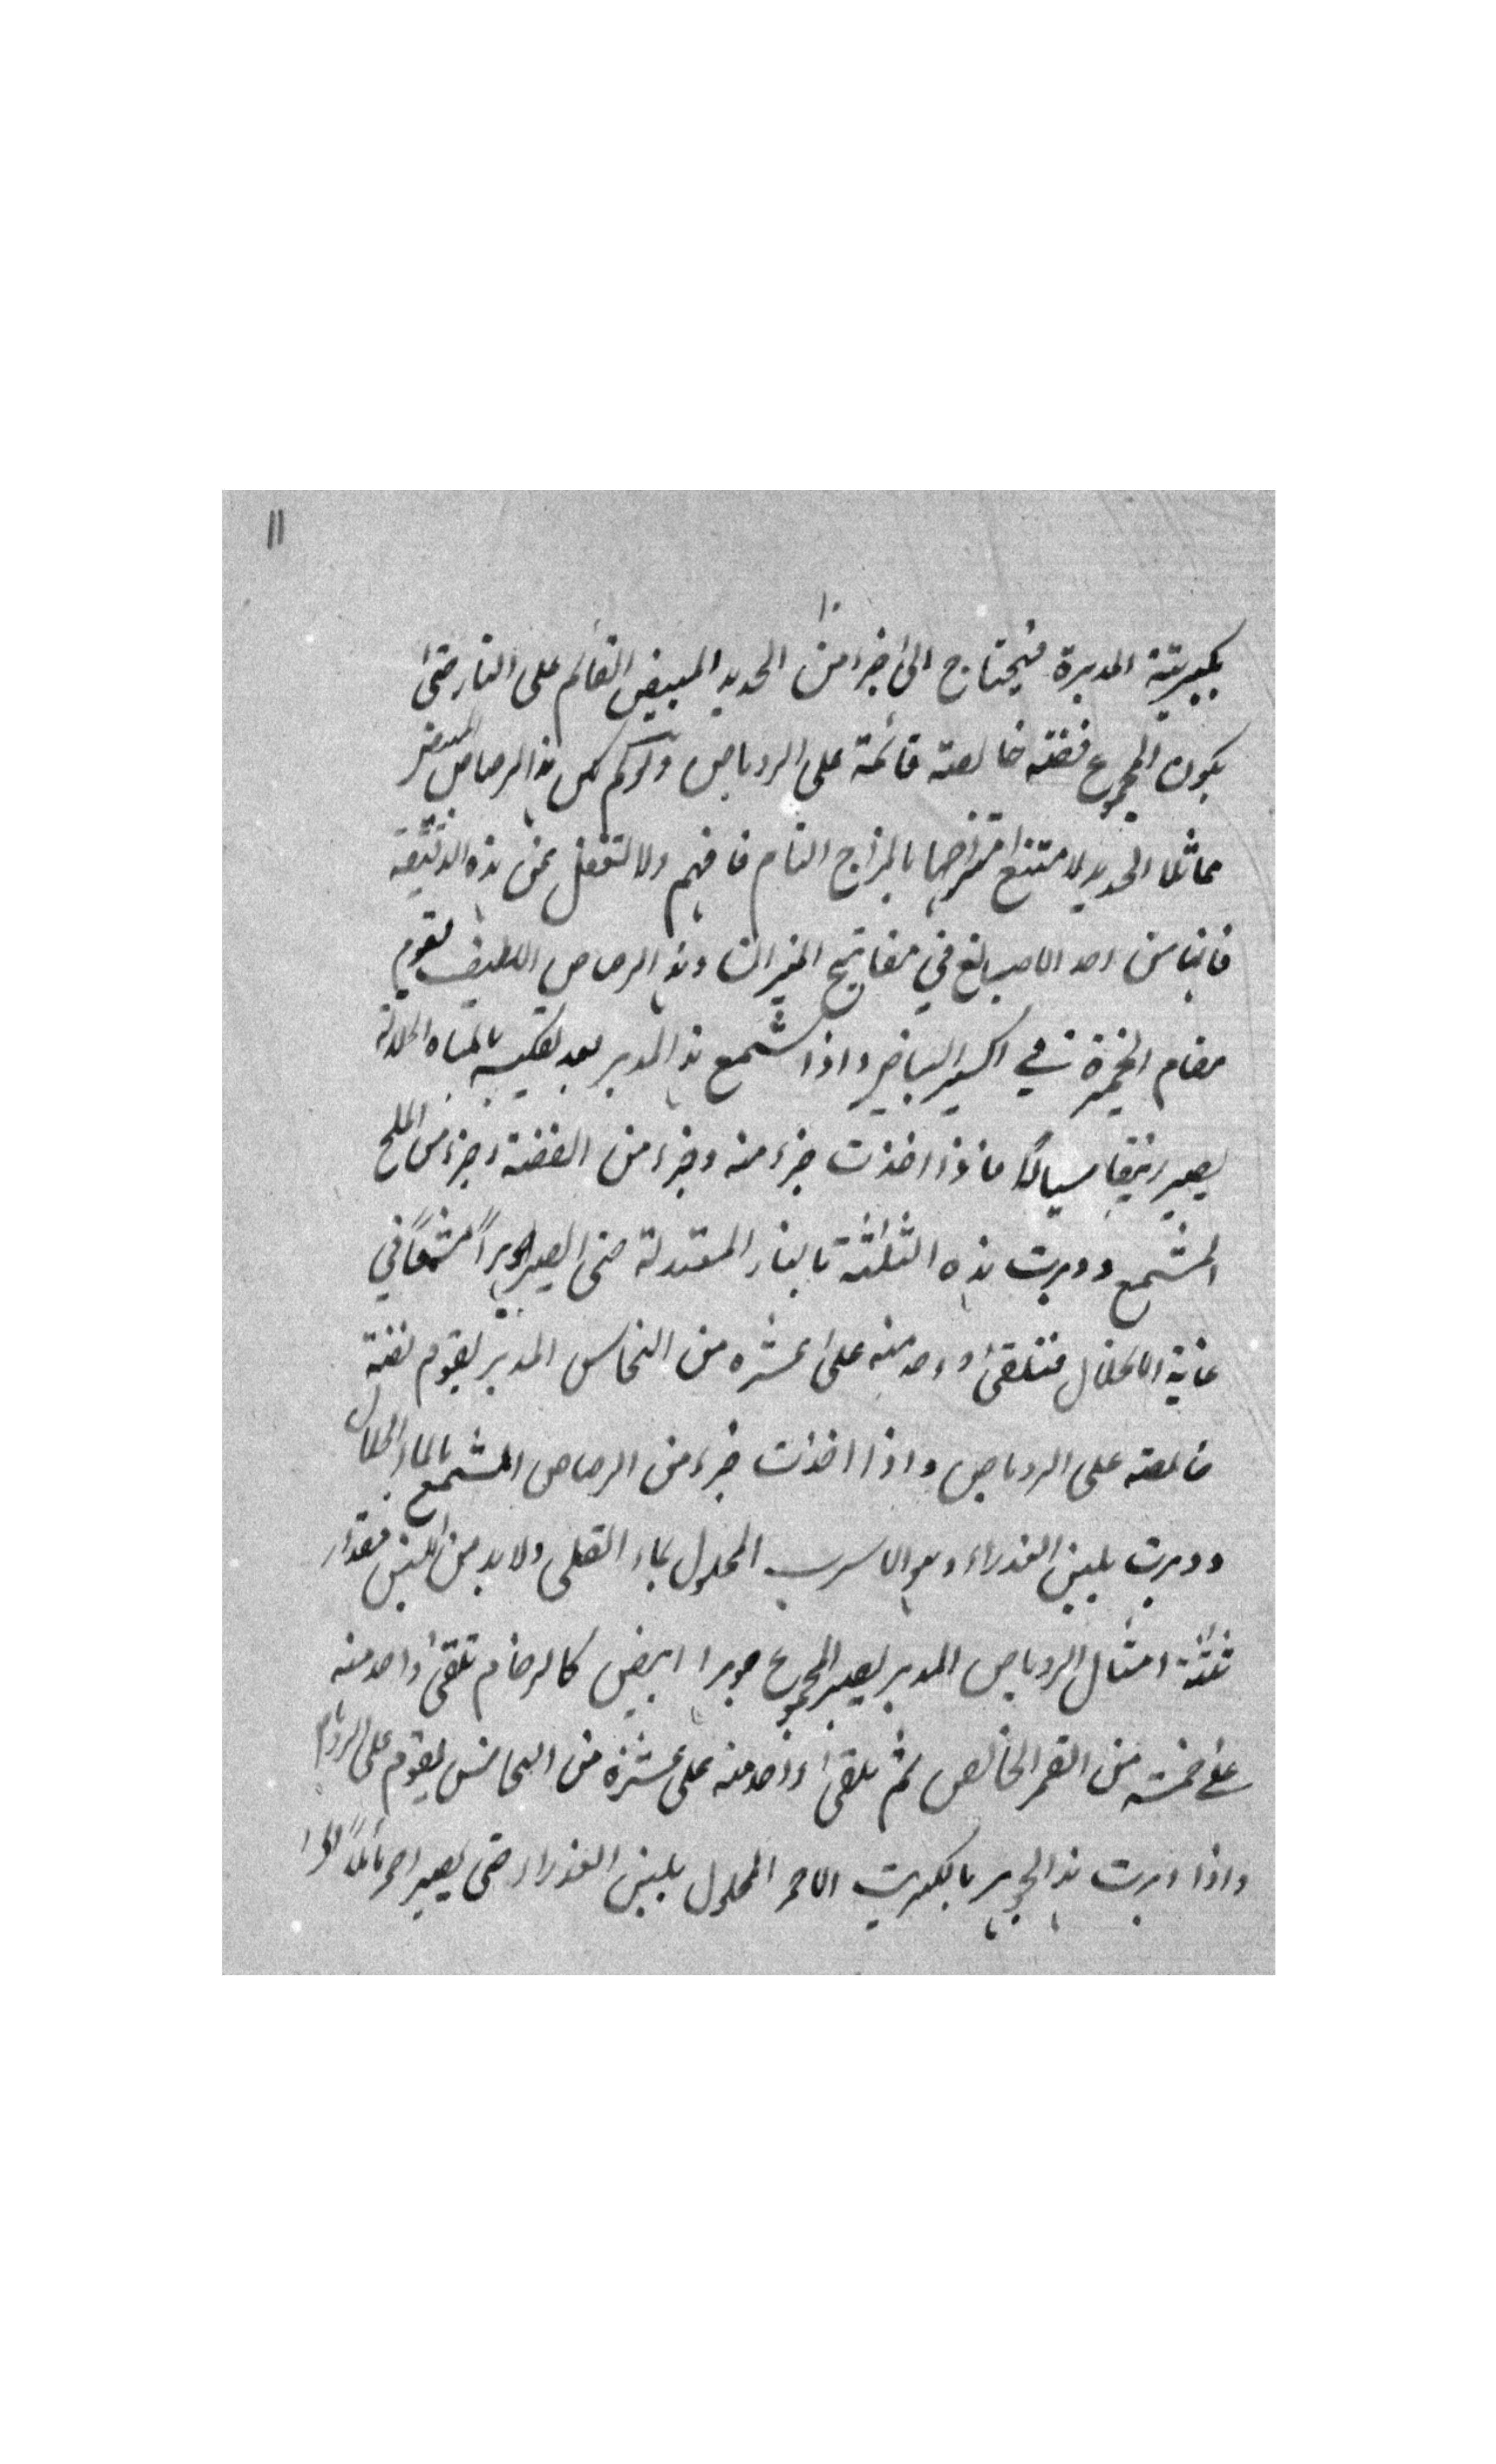 ١١
بكبريتية المدبرة فيحتاج الى جزء من الحديد المبيض القائم على النار حتى
يكون المجموع فضة خالصة قائمة على الروباص ولو لم يكن هذا الرصاص المبيض
مماثلا للحديد لامتنع امتزاجهما بالمزاج التام فافهم ولا تغفل عن هذه الدقيقة
فانها من احد الاصابع في مفاتيح الميزان وهذا الرصاص اللطيف يقوم
مقام الخميرة في اكسير البياض واذا شمع هذا المدبر بعد تكليسه بالمياه الحلالة
يصير زيبقا سيالا فاذا اخذت جزء منه وجزء من الفضة وجزء من الملح
المشمع ودبرت هذه الثلثة بالنار المعتدلة حتى تصير جوهرا مشمعا في
غاية الانحلال فتلقى واحد منه على عشره من النحاس المدبر يقوم فضة
خالصة على الروباص واذا اخذت جزء من الرصاص المشمع بالماء الحلال
ودبرت بلبن العذراء وهو الاسرب المحلول بماء القلى ولا بد من اللبن مقدار
ثلثة امثال الروباص المدبر يصير المجموع جوهرا ابيض كالرخام تلقى واحد منه
على خمسة من القمر الخالص ثم يلقى واحد منه على عشرة من النحاس يقوم على الروباص
واذا دبرت هذا الجوهر بالكبريت الاحمر المحلول بلبن العذراء حتى يصير احمر مائلا